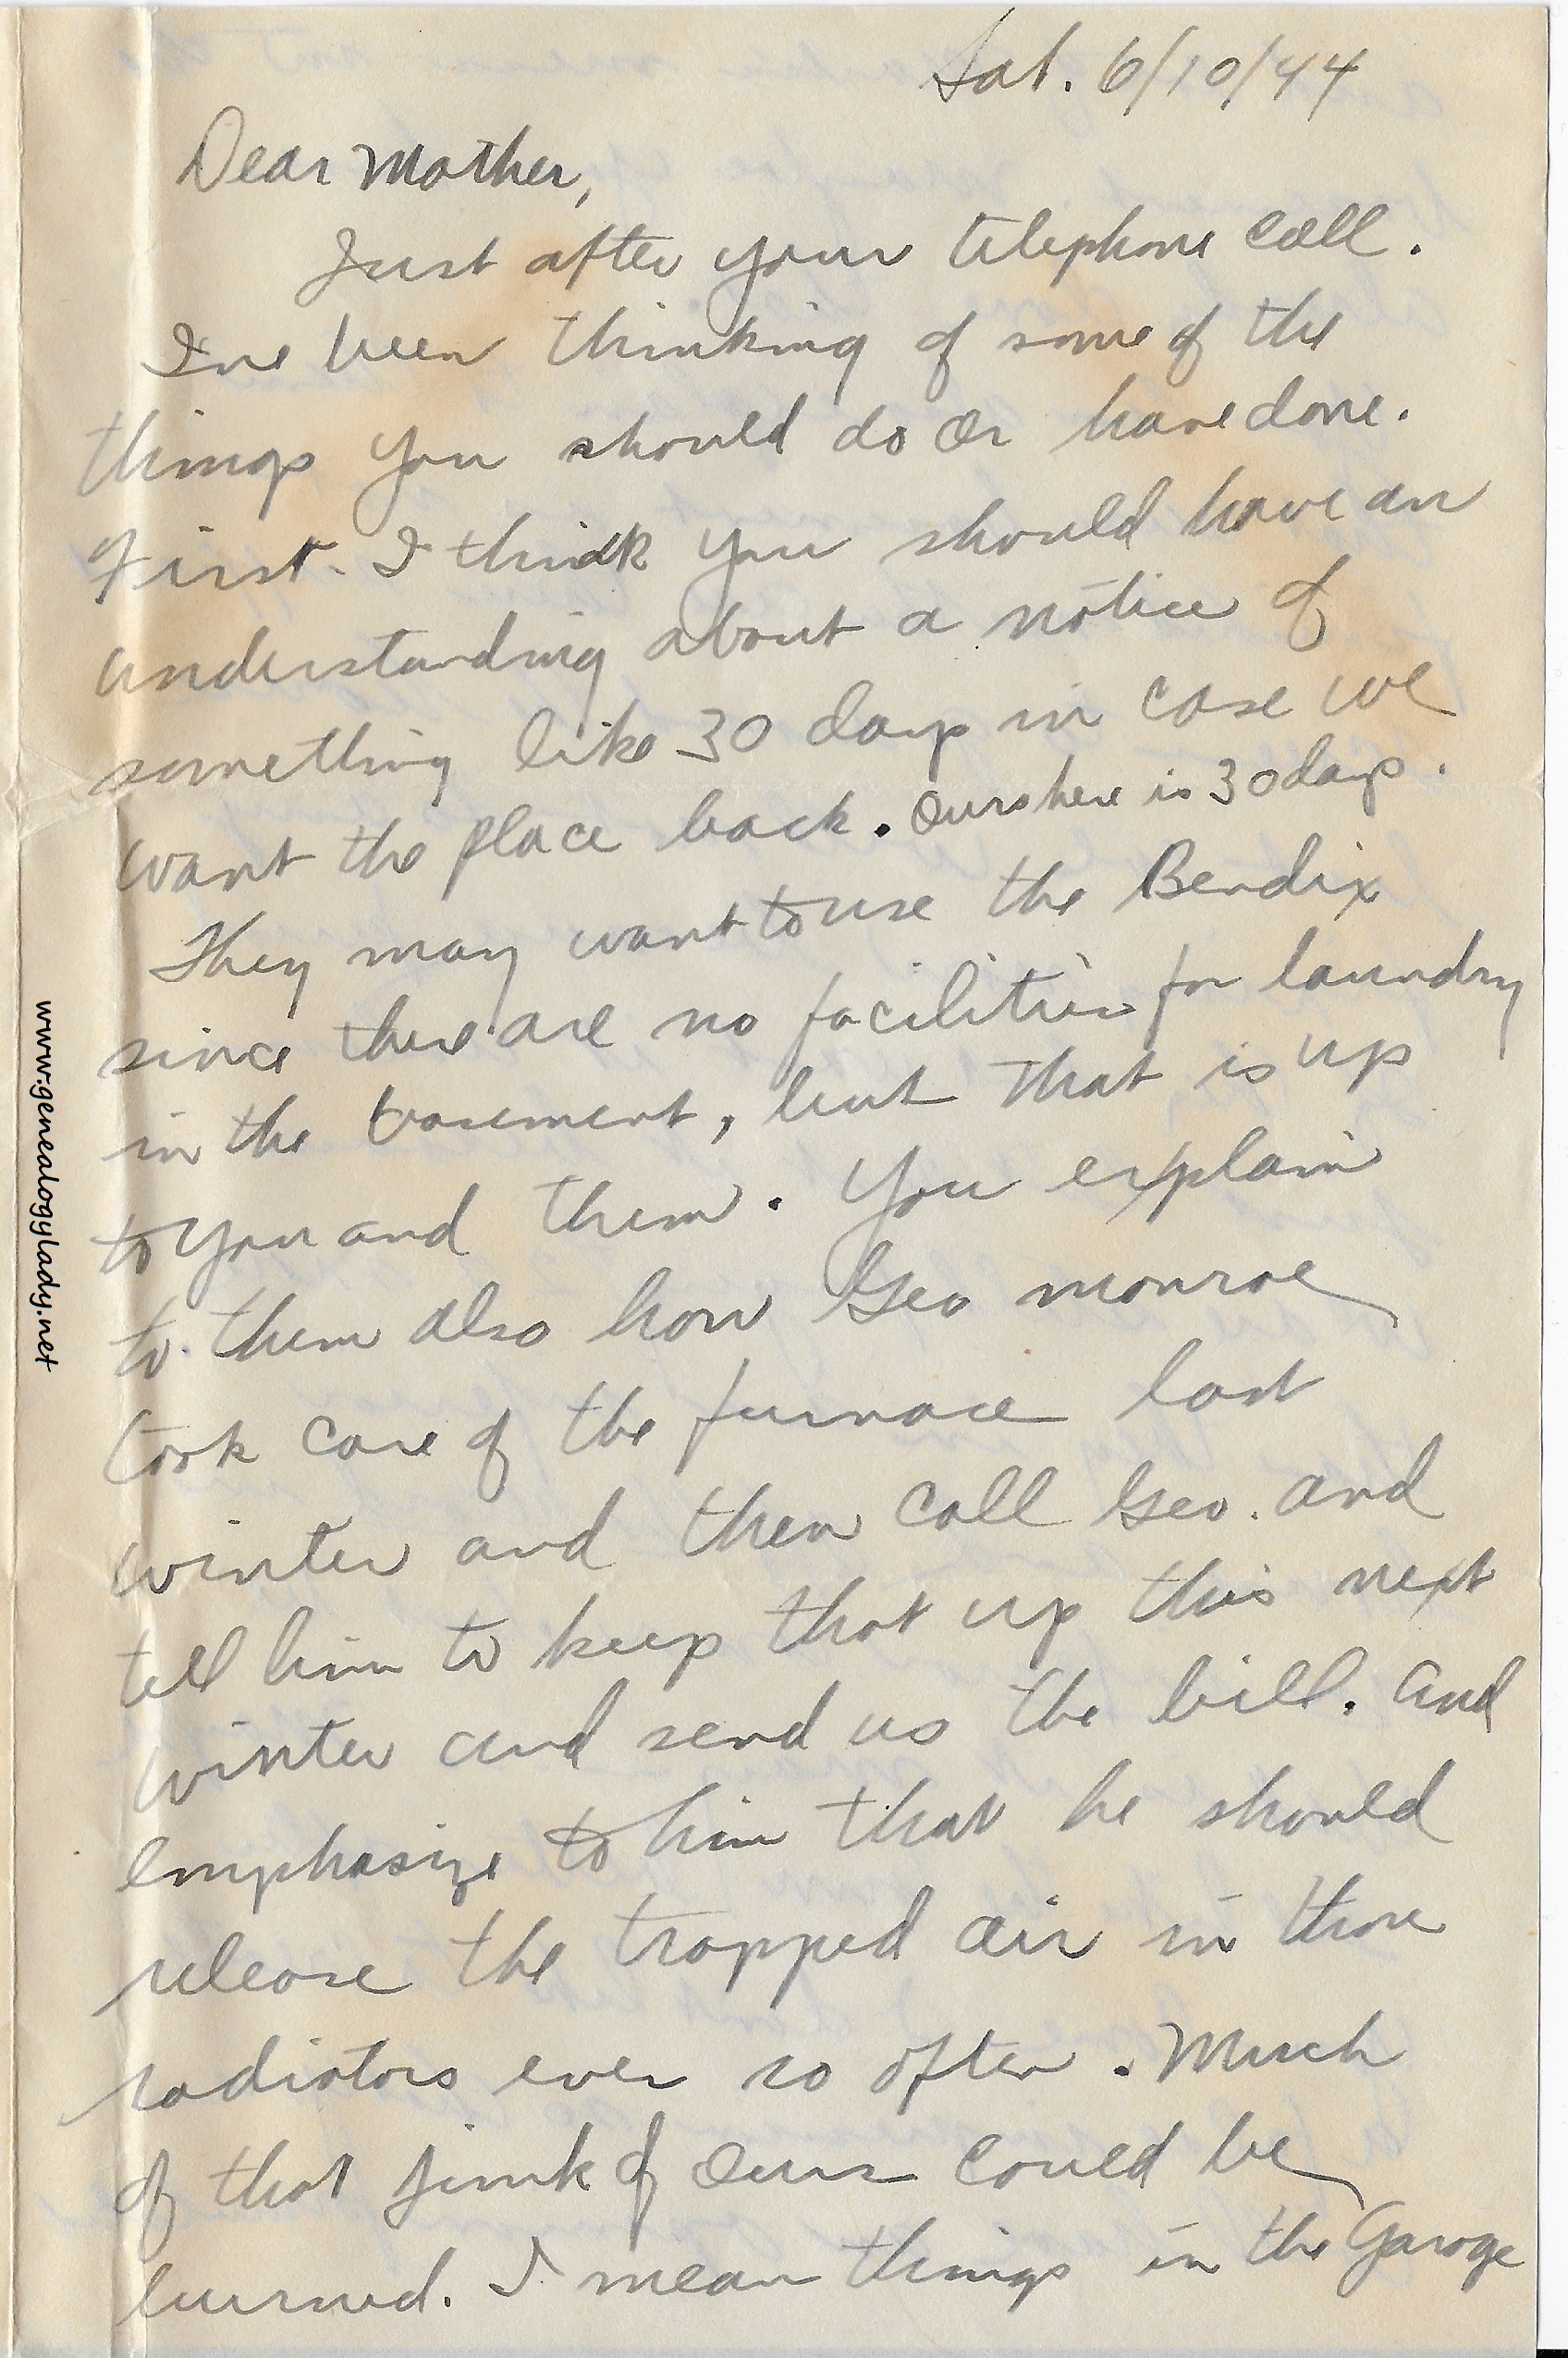 Sat. 6/10/44
Dear Mother,
Just after your telephone call.
I've been thinking of some of the
things you should do or have done.
First. I think you should have an
understanding about a notice of
something like 30 days in case we
want the place back. Ours here is 30 days.
They may want to use the Bendix
since there are no facilities for laundry
in the basement, but that is up
to you and them. You explain
to them also how Geo Monroe
took care of the furnace last
winter and then call Geo. and
tell him to keep that up this next
winter and send us the bill. And
emphasize to him that he should
release the trapped air in those
radiators ever so often. Much
of that junk of ours could be
burned. I mean things in the Garage
www.genealogylady.net